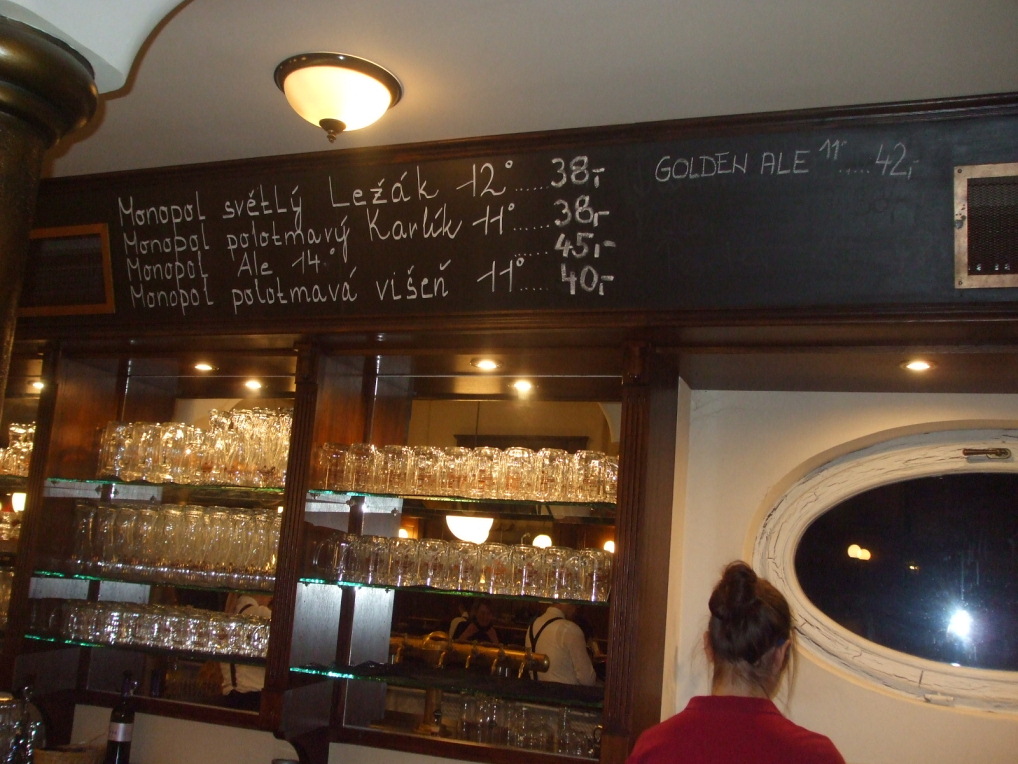 Monopol světlý Ležák 12°.....38,-
Monopol polotmavý Karlík 11°......38,-
Monopol Ale 14°.....45,-
Monopol polotmavá višeň 11°.....40,-
GOLDEN ALE 11°.....42,-